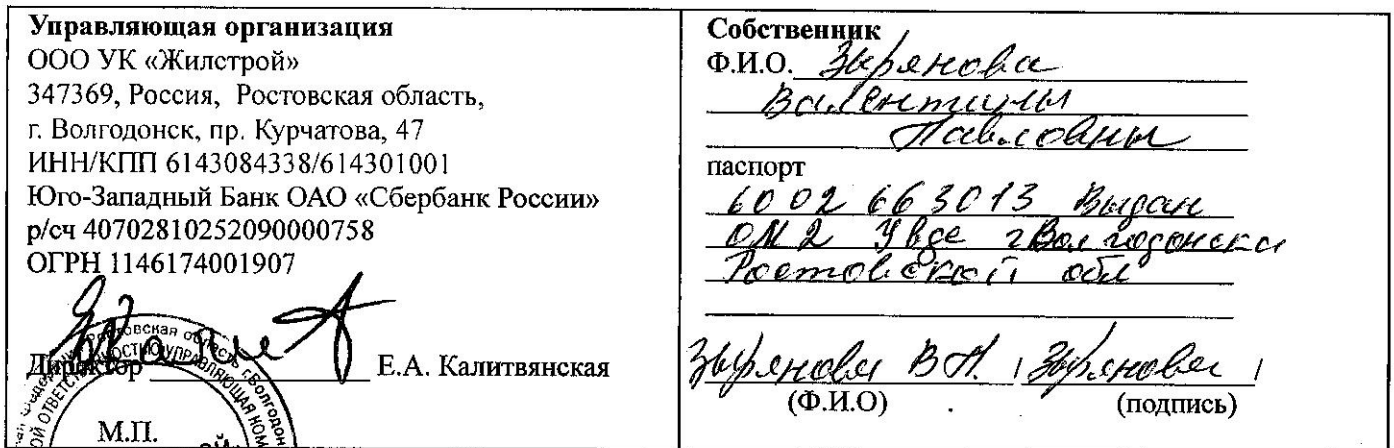 Управляющая организация
ООО УК «Жилстрой»
347369, Россия, Ростовская область,
г. Волгодонск, пр. Курчатова, 47
ИНН/КПП 6143084338/614301001
Юго-Западный Банк ОАО «Сбербанк России»
р/сч 40702810252090000758
ОГРН 1146174001907
Директор Е.А. Калитвянская
М.П.
Собственник
Ф.И.О. Зырянова
Валентины
Павловны
паспорт
6002 663013 Выдан
ОМ 2 Увде г Волгодонска
Ростовской обл
Зырянова В П. / Зырянова /
(Ф.И.О) (подпись)